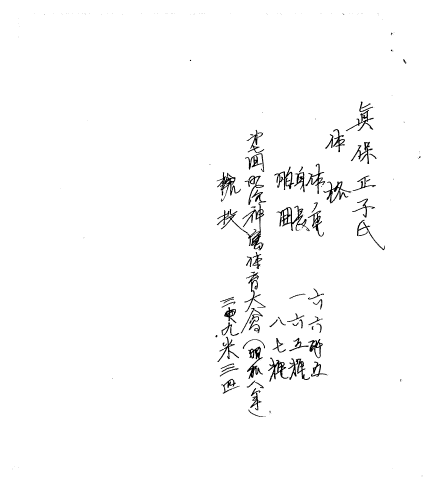 眞保正子氏
体格
体重 六六瓩五
身長 一六五糎
胸囲 八七糎
第七回明治神宮体育大會(昭和八年)
槍投 三九米三四